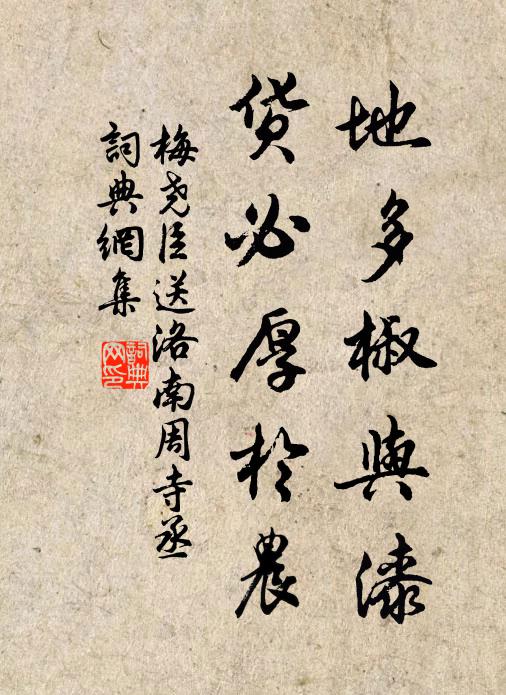 地多椒與漆
貨必厚於農
梅堯臣送洛南周寺丞
詞典網集
詞典
网印